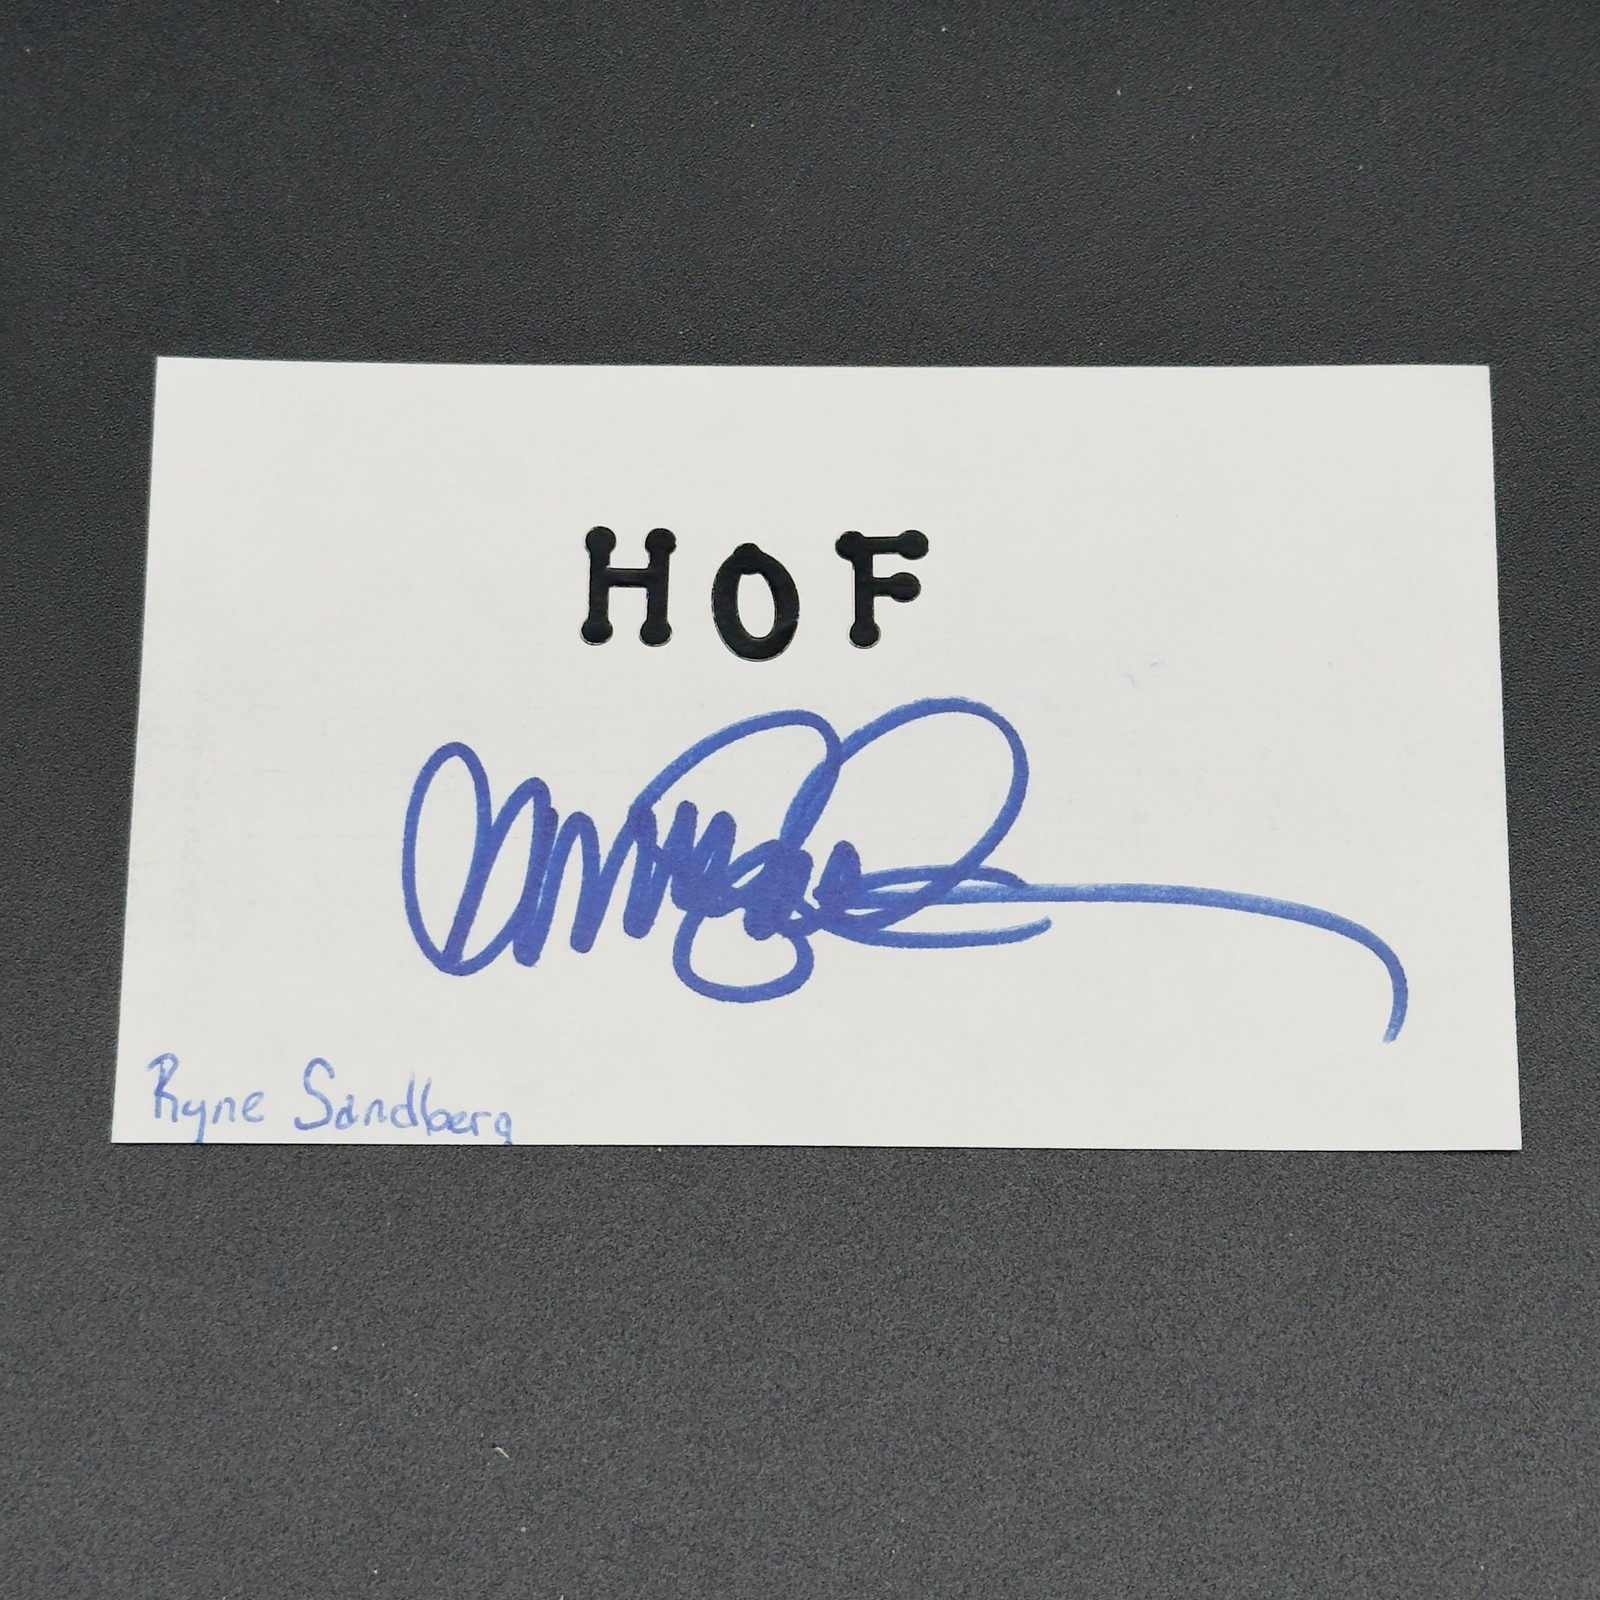 HOF
Ryne Sandberg